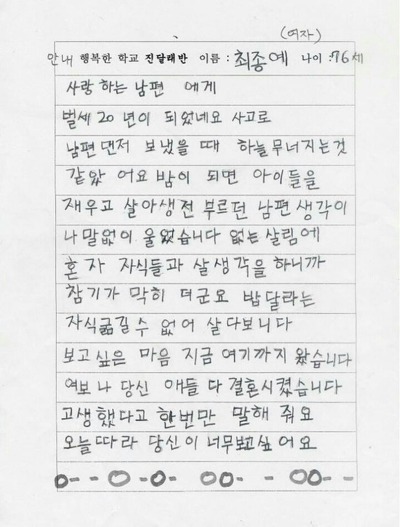 (여자)
안내 행복한 학교 진달래반 이름 : 최종예 나이 : 76세
사랑 하는 남편 에게
벌세 20년이 되었네요 사고로
남편 댄저 보냈을 때 하늘 무너지는것
같았 어요 밤이 되면 아이들을
재우고 살아생전 부르던 남편 생각이
나 말없이 울었습니다 없는 살림에
혼자 자식들과 살생각을 하니까
참기가 막히 더군요 밥달라는
자식굶길수 없어 살다보니다
보고싶은 마음 지금 여기까지 왔습니다
여보 나 당신 애들 다 결혼시켰습니다
고생했다고 한번만 말해 줘요
오늘따라 당신이 너무보고싶어요